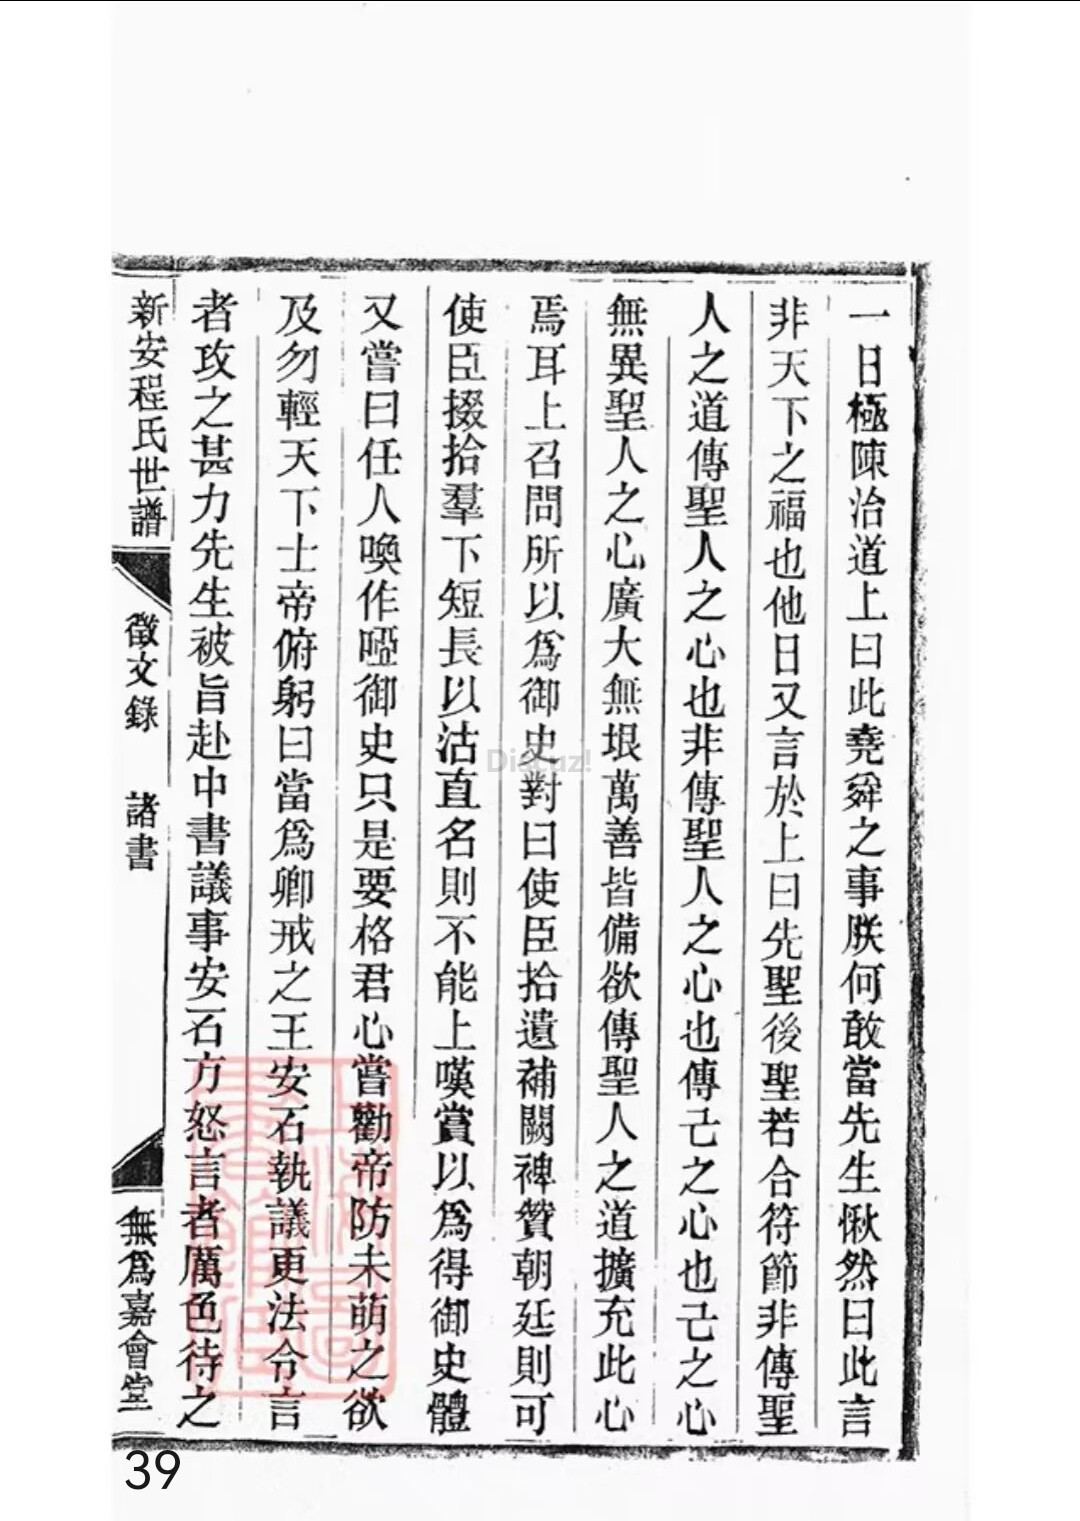 一日極陳治道上曰此堯舜之事朕何敢當先生愀然曰此言
非天下之福也他日又言於上曰先聖後聖若合符節非傳聖
人之道傳聖人之心也非傳聖人之心也傳己之心也己之心
無異聖人之心廣大無垠萬善皆備欲傳聖人之道擴充此心
焉耳上召問所以爲御史對曰使臣拾遺補闕裨贊朝廷則可
使臣掇拾羣下短長以沽直名則不能上嘆賞以爲得御史體
又嘗曰任人喚作啞御史只是要格君心嘗勸帝防未萌之欲
及勿輕天下士帝俯躬曰當爲卿戒之王安石執議更法令言
者攻之甚力先生被旨赴中書議事安石方怒言者厲色待之
新安程氏世譜
徵文錄 諸書
無爲嘉會堂
Discuz!
39